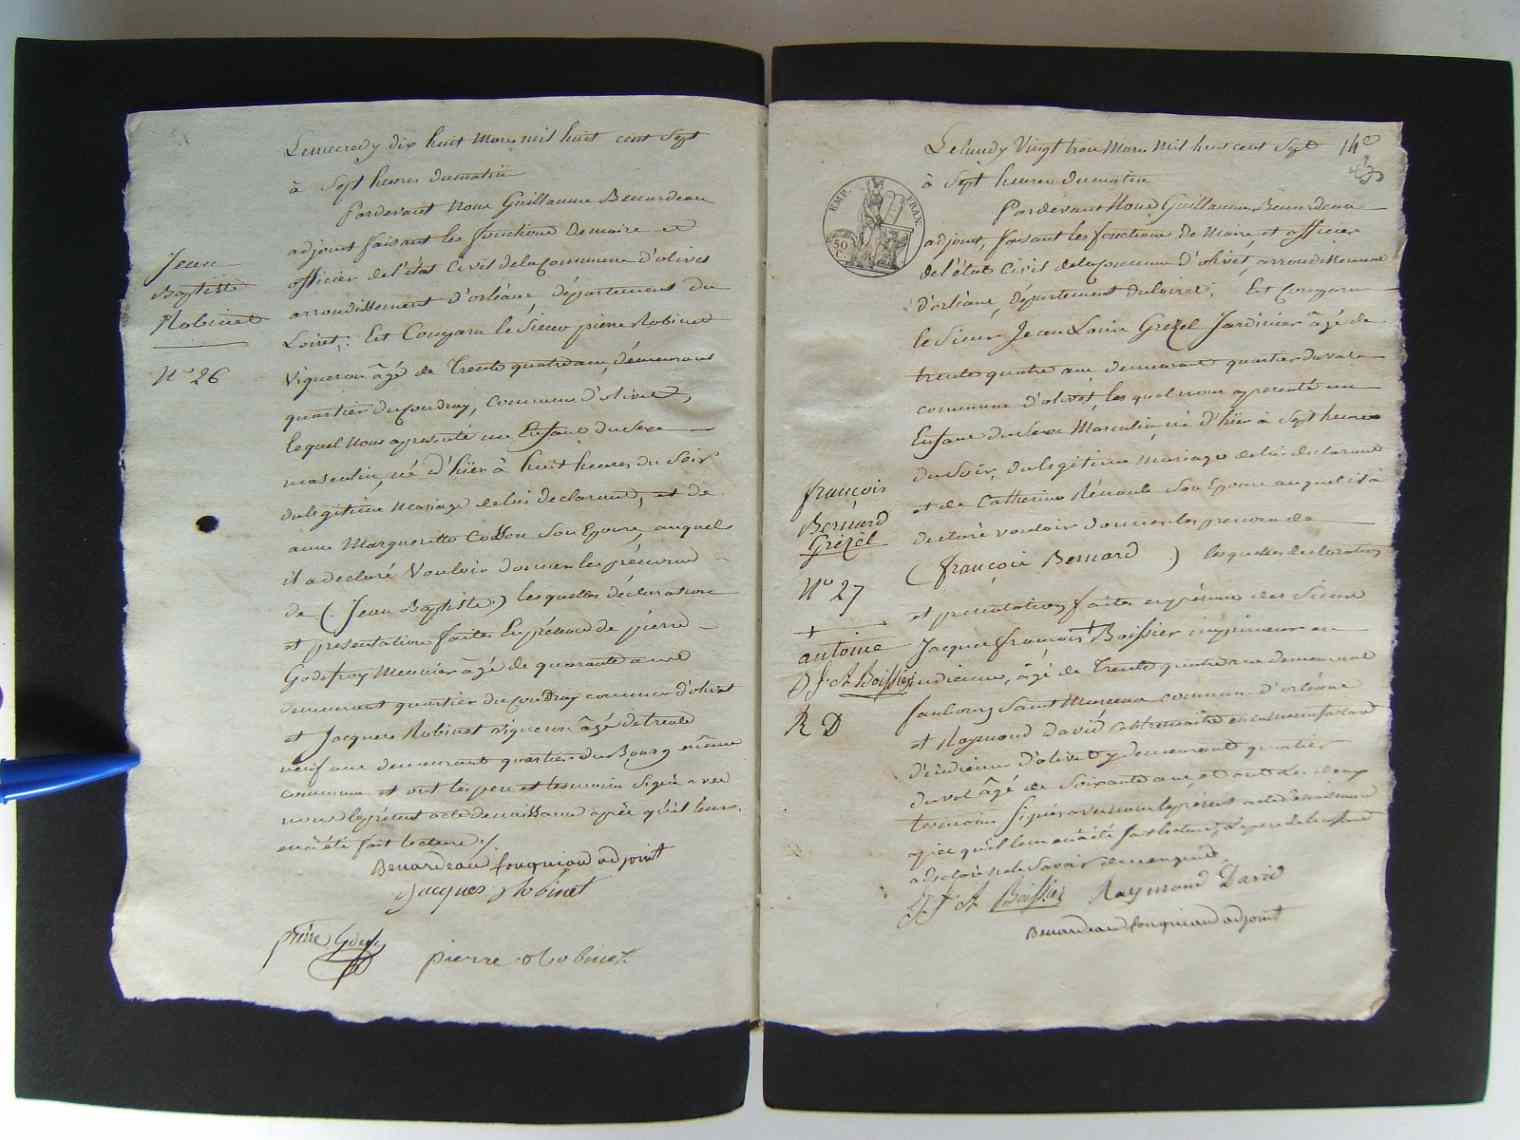 Lemecredy dix huit Mars mil huit cent Sept
à Sept heures du matin
Pardevant Nous Guillaume Beuardeau
adjoint faisant les fonctions de maire et
officier de l'état Civil de la Commune d'olivet
arrondissement d'orléans, département du
Loiret; Est Comparu le Sieur pierre Robinet
Vigneron âgé de Trente quatre ans, demeurant
quartier du Coudray, commune d'olivet,
lequel Nous a presenté un Enfant du Sexe
masculin, né d'hier à huit heures du Soir
du legitime Mariage de lui declarant, et de
anne Margueritte Son Epouse, auquel
il a declaré Vouloir donner les prénoms
de (Jean Baptiste.) lesquelles déclaration
et presentation faites En présence de pierre
Godefroy Meunier âgé de quarante ans
demeurant quartier du Coudray commune d'olivet
et Jacques Robinet vigneron âgé de trente
neuf ans demeurant quartier du Bourg même
commune et ont les pere et temoins Signé avec
nous le présent acte de naissance après qu'il leurs
en a été fait lecture /.
Beuardeau fougniou adjoint
Jacques Robinet
pierre
pierre Robinet
Jean
Baptiste
Robinet
N° 26
Le lundy Vingt trois Mars Mil huit cent Sept
14e
à Sept heures du matin
Pardevant Nous Guillaume Beuardeau
EMP. FRAN.
50 C.
adjoint, faisant les fonctions de Maire et officier
de l'état Civil de la Commune d'olivet, arrondissement
d'orléans, département du Loiret; Est Comparu
le Sieur Jean Louis Grezel Jardinier âgé de
trente quatre ans demeurant quartier du val
commune d'olivet, lequel nous a presenté un
Enfant du Sexe Masculin, né d'hier à Sept heures
du Soir, du legitime Mariage de lui declarant
et de Catherine Renault Son Epouse auquel il a
declaré vouloir donner les prenoms de
(françois Bernard) lesquelles declaration
et presentation faites en présence des Sieurs
Jacques françois + Boissier imprimeur en
indienne, âgé de Trente quatre ans demeurant
faubourg Saint Marceau commune d'orléans
et Raymond David
d'indienne d'olivet y demeurant quartier
du val âgé de Soixante ans,
temoins Signé avec nous le présent acte de naissance
après qu'il leur en a été fait lecture, le pere de l'enfant
a declaré ne le Savoir
J. f A Boissier Raymond David
Beuardeau fougniou adjoint
françois
Bernard
Grézél
N° 27
+
antoine
J f A Boissier
R D